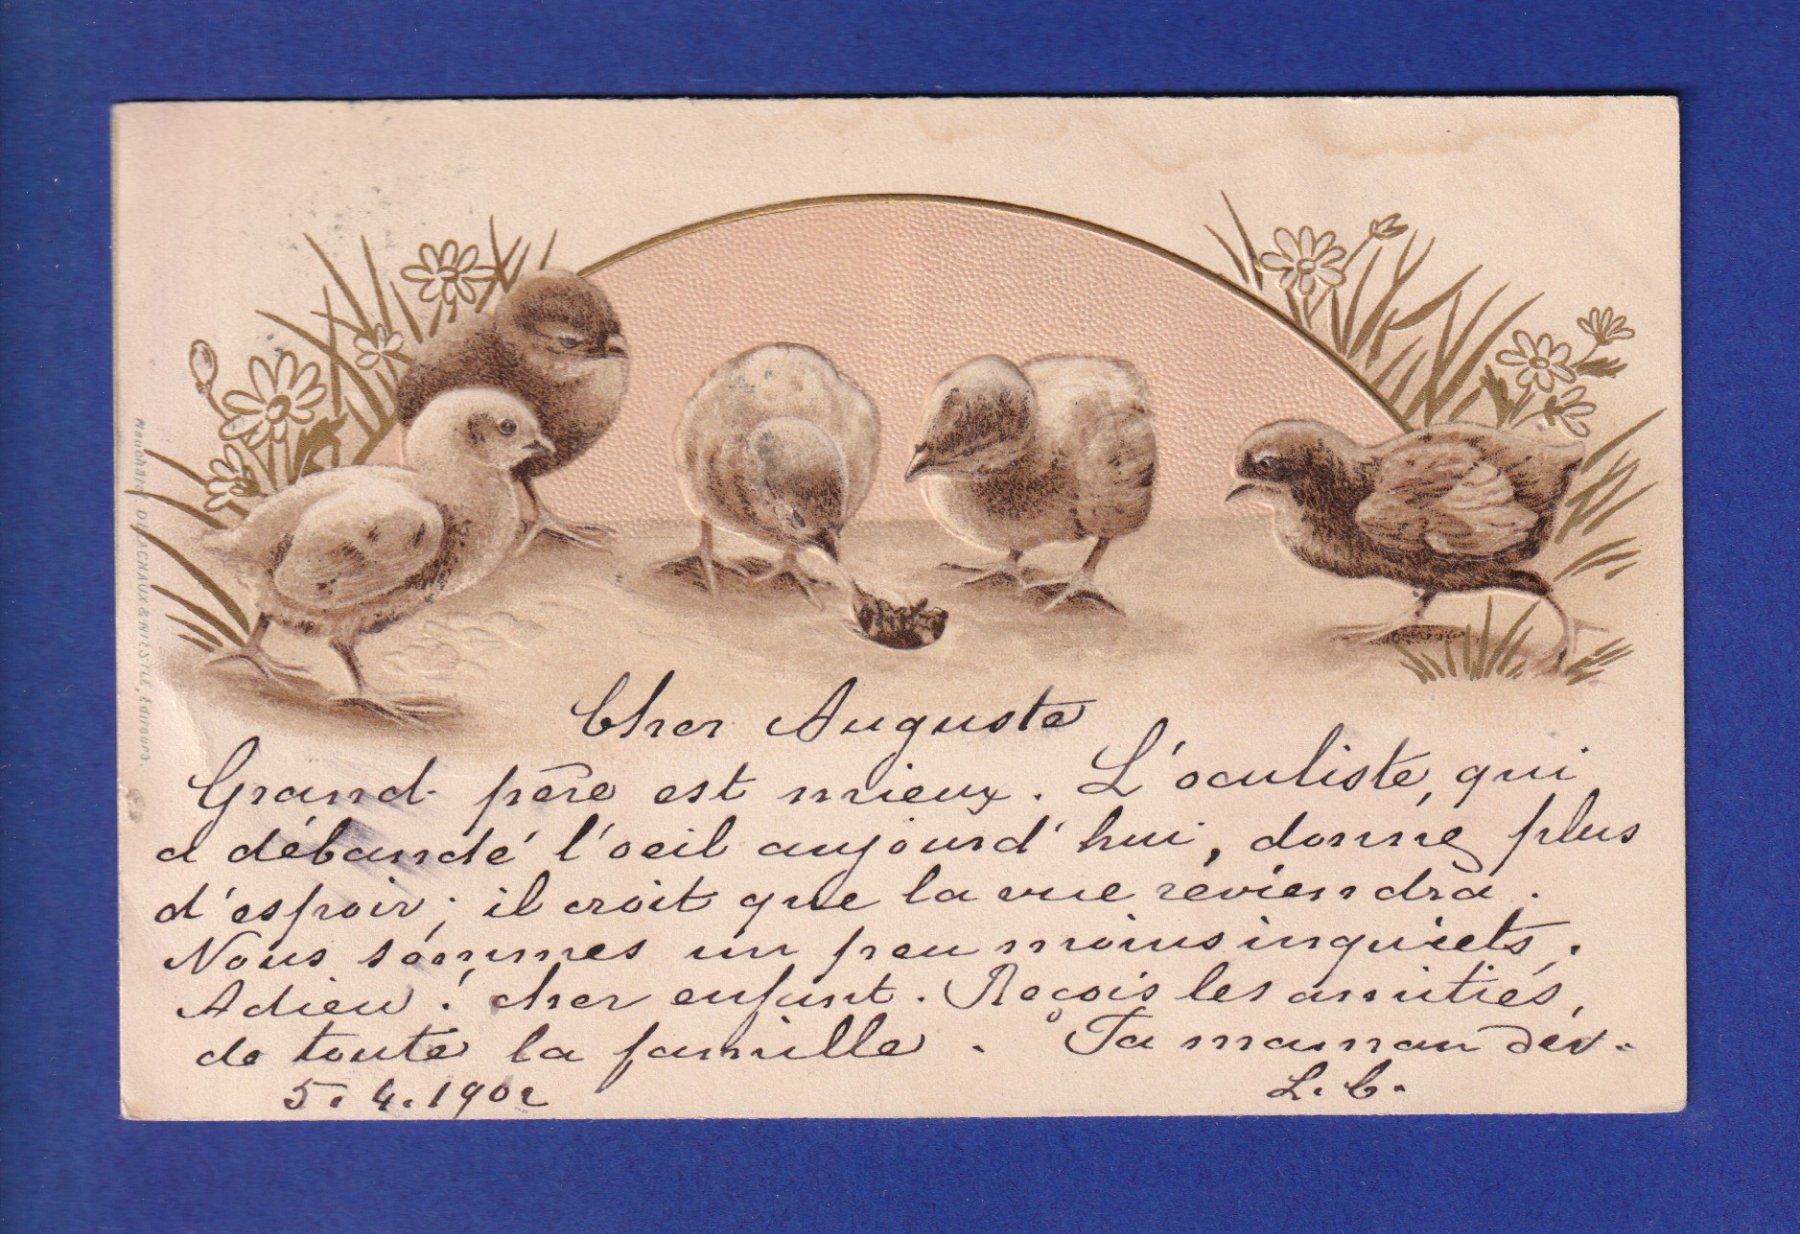 Cher Auguste
Grand-père est mieux. L'oculiste, qui
a débandé l'oeil aujourd'hui, donne plus
d'espoir; il croit que la vue reviendra.
Nous sommes un peu moins inquiets.
Adieu! cher enfant. Reçois les amitiés,
de toute la famille. Ta maman dév.
5.4.1902 L. C.
DELACHAUX & NIESTLÉ, Editeurs.